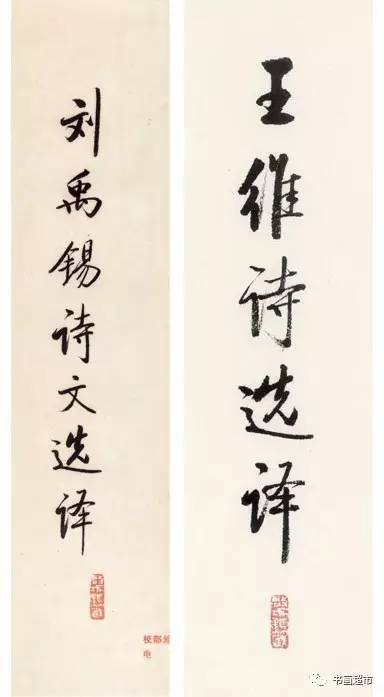 王维诗选译
刘禹锡诗文选译
书画超市